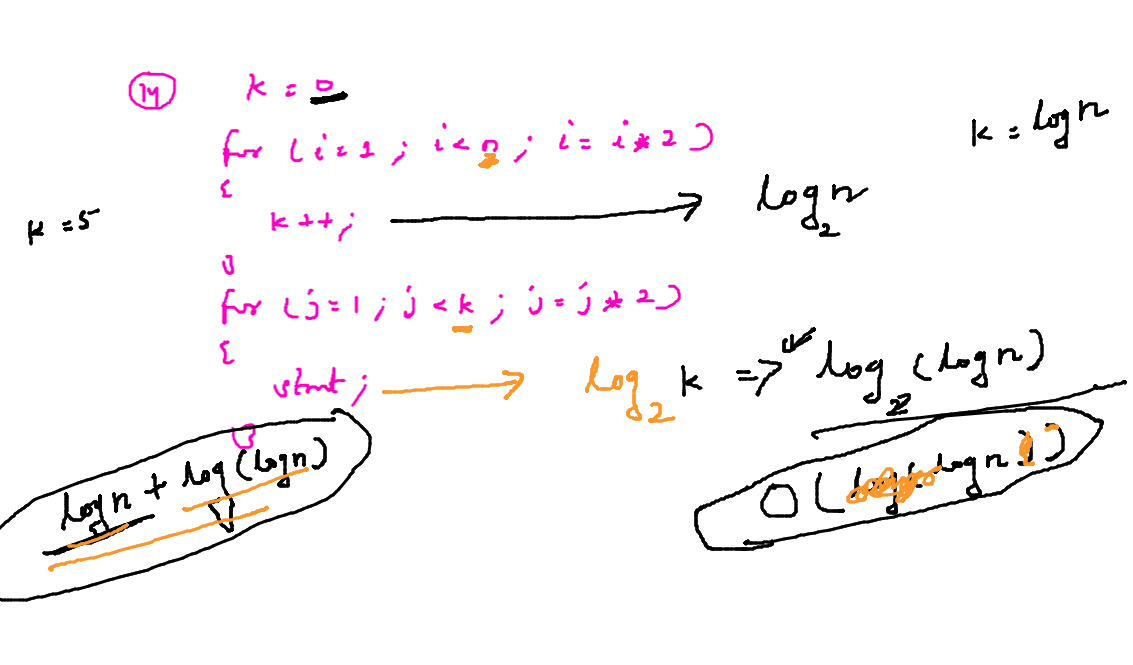 14 k = 0
for (i=1 ; i<n ; i = i*2)
{
k++; → log₂n
}
k = logn
k = 5
for (j=1 ; j<k ; j=j*2)
{
stmt ; → log₂ k => log₂ (logn)
}
logn + log(logn)
O( logn )